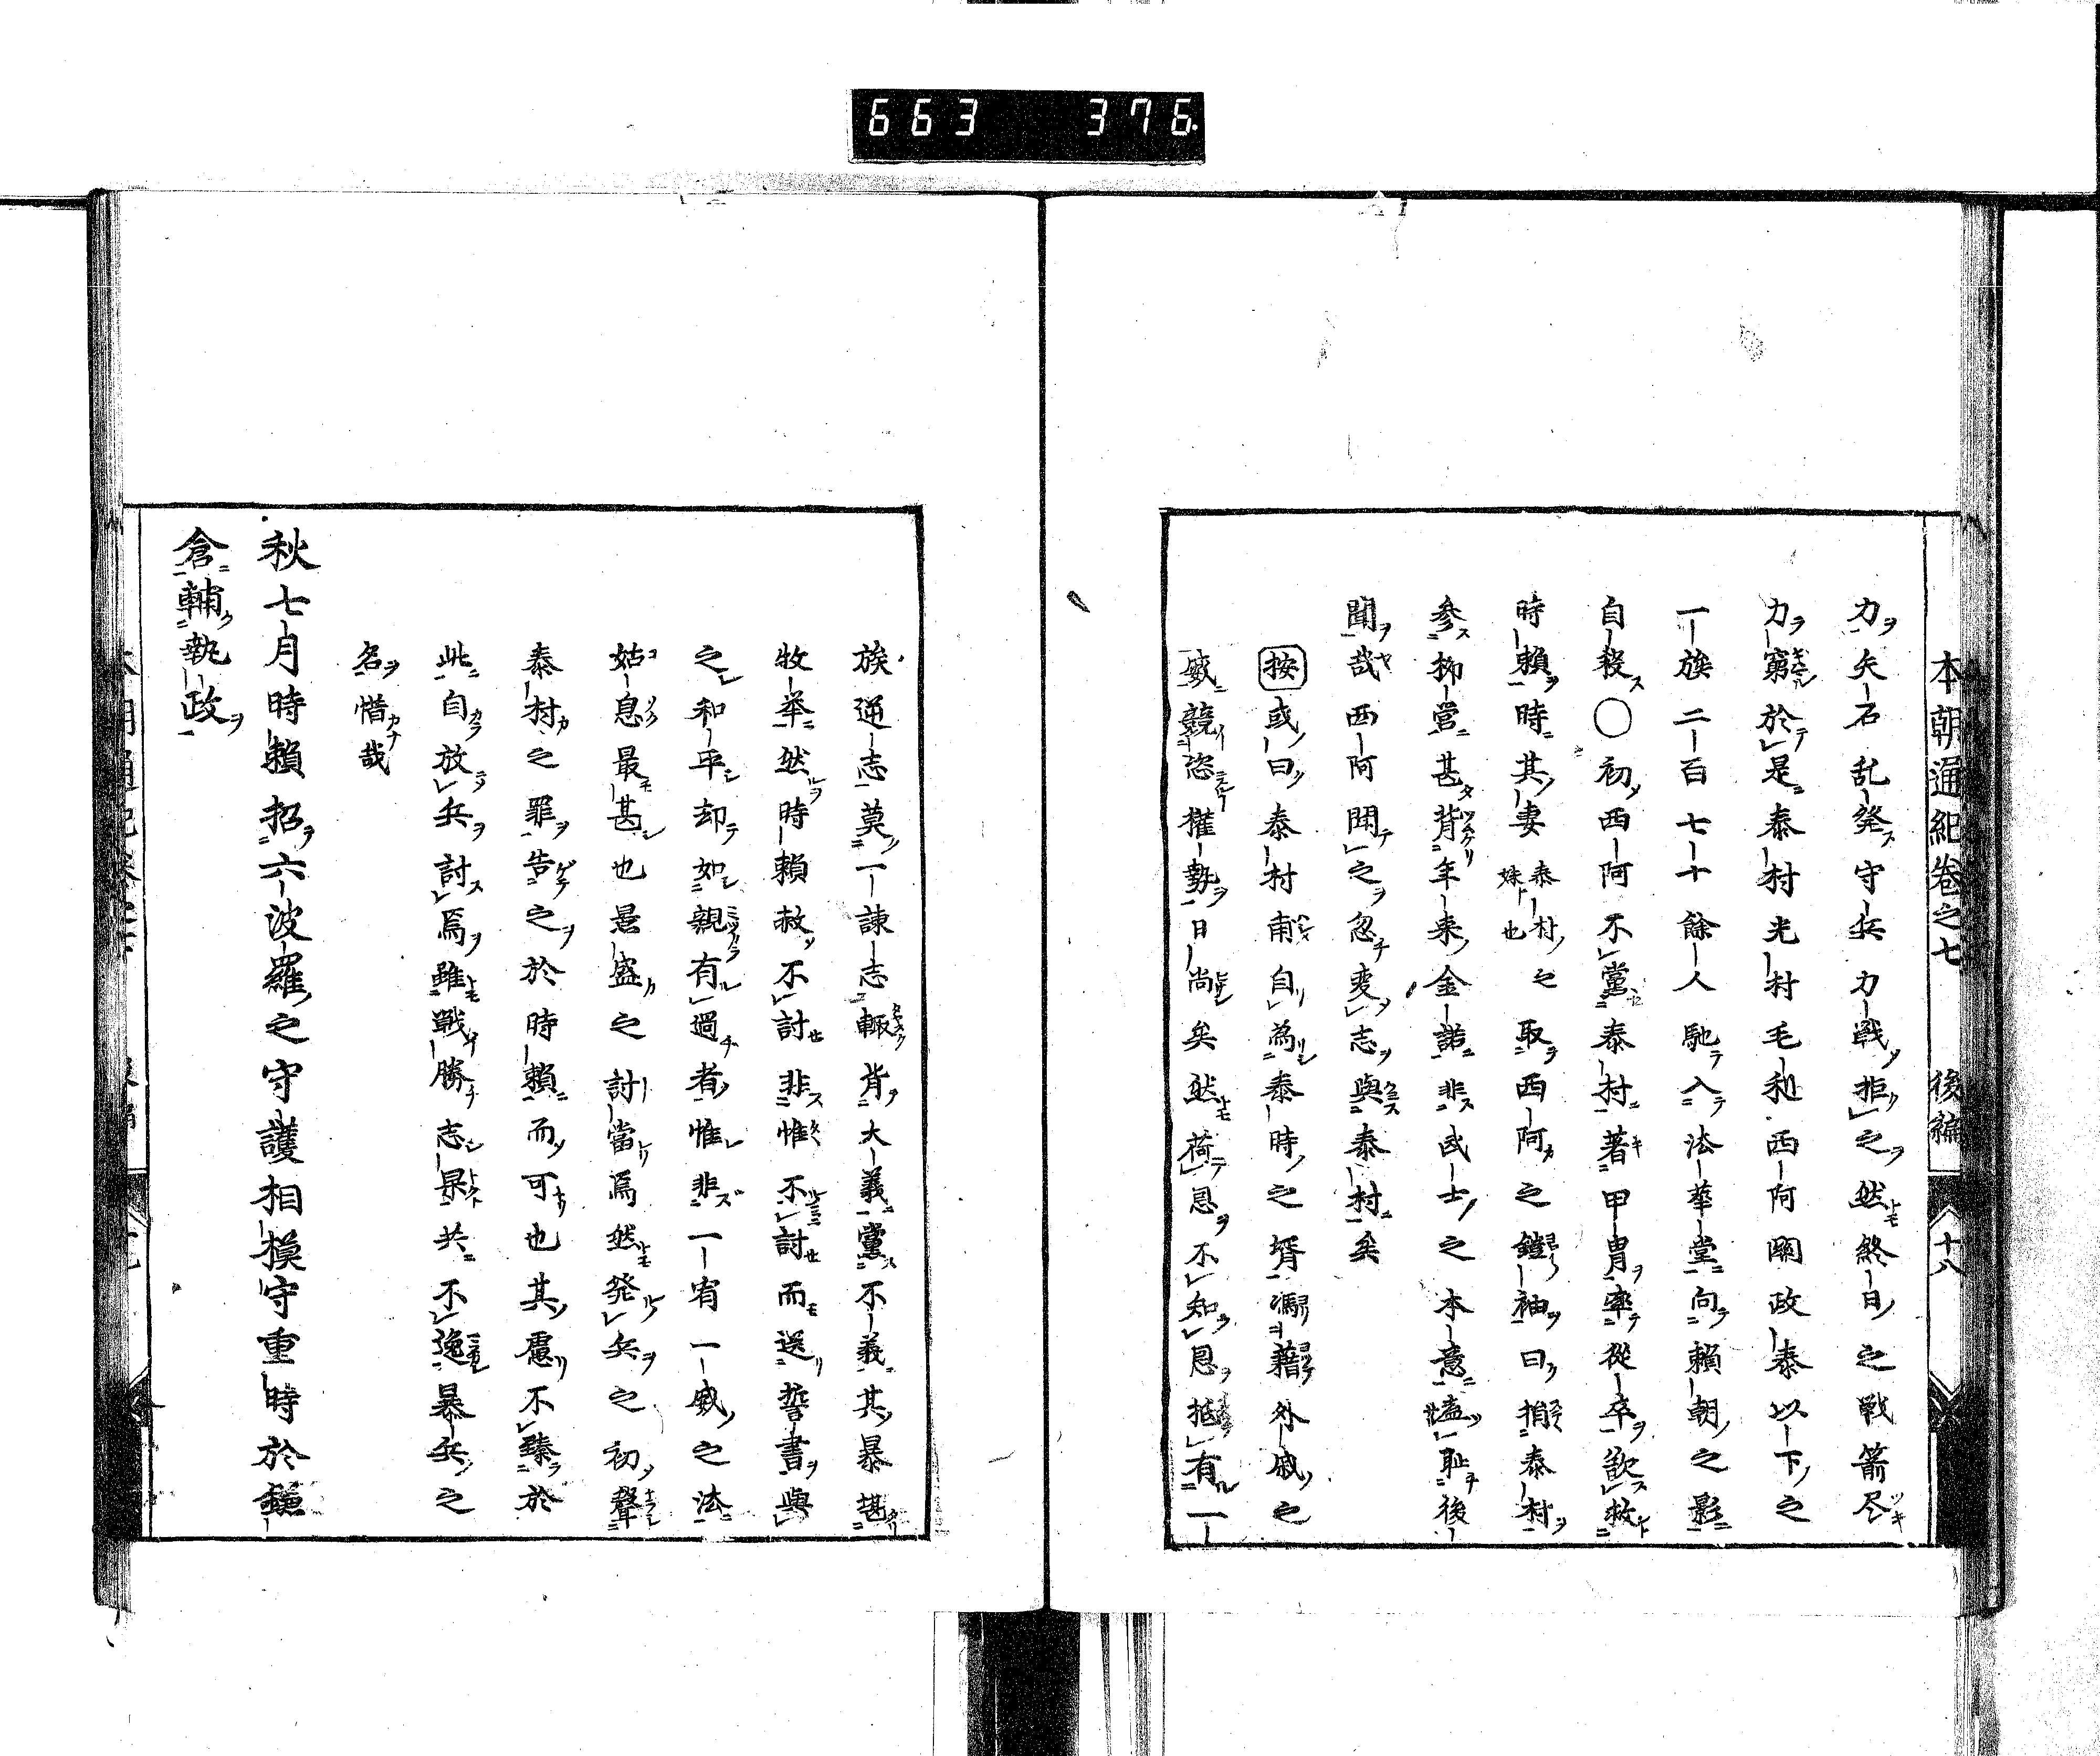 663 376
本朝通紀卷之七 後編 十八
力矢石乱発守兵力戦拒之然終日之戦箭尽
力窮於是泰村光村毛利西阿関政泰以下之
一族二百七十餘人馳入法華堂向頼朝之影
自殺〇初西阿不黨泰村著甲冑率從卒欲救
時頼時其妻泰村之妹也取西阿之鎧袖曰捐泰村
参抑営甚背年来金諾非武士之本意盍恥後
聞哉西阿聞之忽変志與泰村矣
按或曰泰村甫自為泰時之壻馮藉外戚之
威競恣權勢日尚矣然荷恩不知恩抵有一
族逆志莫一諌志輙背大義黨不義其暴甚
牧挙然時頼赦不討非惟不討而送誓書與
之和平却如親有過者惟非一宥一威之法
姑息最甚也景盛之討當焉然発兵之初聲
泰村之罪告之於時頼而可也其慮不臻於
此自放兵討焉雖戦勝志果共不逸暴兵之
名惜哉
秋七月時頼招六波羅之守護相模守重時於鎌
倉輔執政